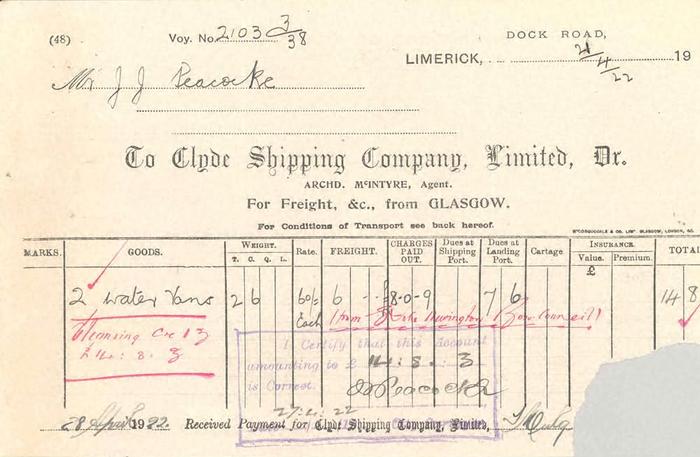 (48) Voy. No. 2103 3/38 DOCK ROAD,
LIMERICK, 21/4/22 19
Mr J J Peacocke
To Clyde Shipping Company, Limited, Dr.
ARCHD. McINTYRE, Agent.
For Freight, &c., from GLASGOW.
For Conditions of Transport see back hereof.
MARKS. GOODS. WEIGHT. T. C. Q. L. Rate. FREIGHT. CHARGES PAID OUT. Dues at Shipping Port. Dues at Landing Port. Cartage INSURANCE. Value. Premium. TOTAL
£
2 Water Vans 2 6 60/- 6 8-0-9 7 6 14 8
Each
£14 : 8 . 3
I Certify that this Account
amounting to £ 14 : 8 . 3
is Correct.
JJ Peacocke
27.4.22
28 April 1922. Received Payment for Clyde Shipping Company, Limited,